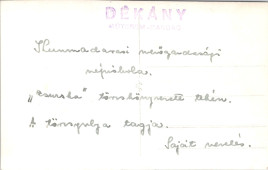 DÉKÁNY
Kunmadarasi mezőgazdasági
népiskola.
„Csurska” törzskönyvezett tehén.
A törzsgulya tagja.
Saját nevelés.